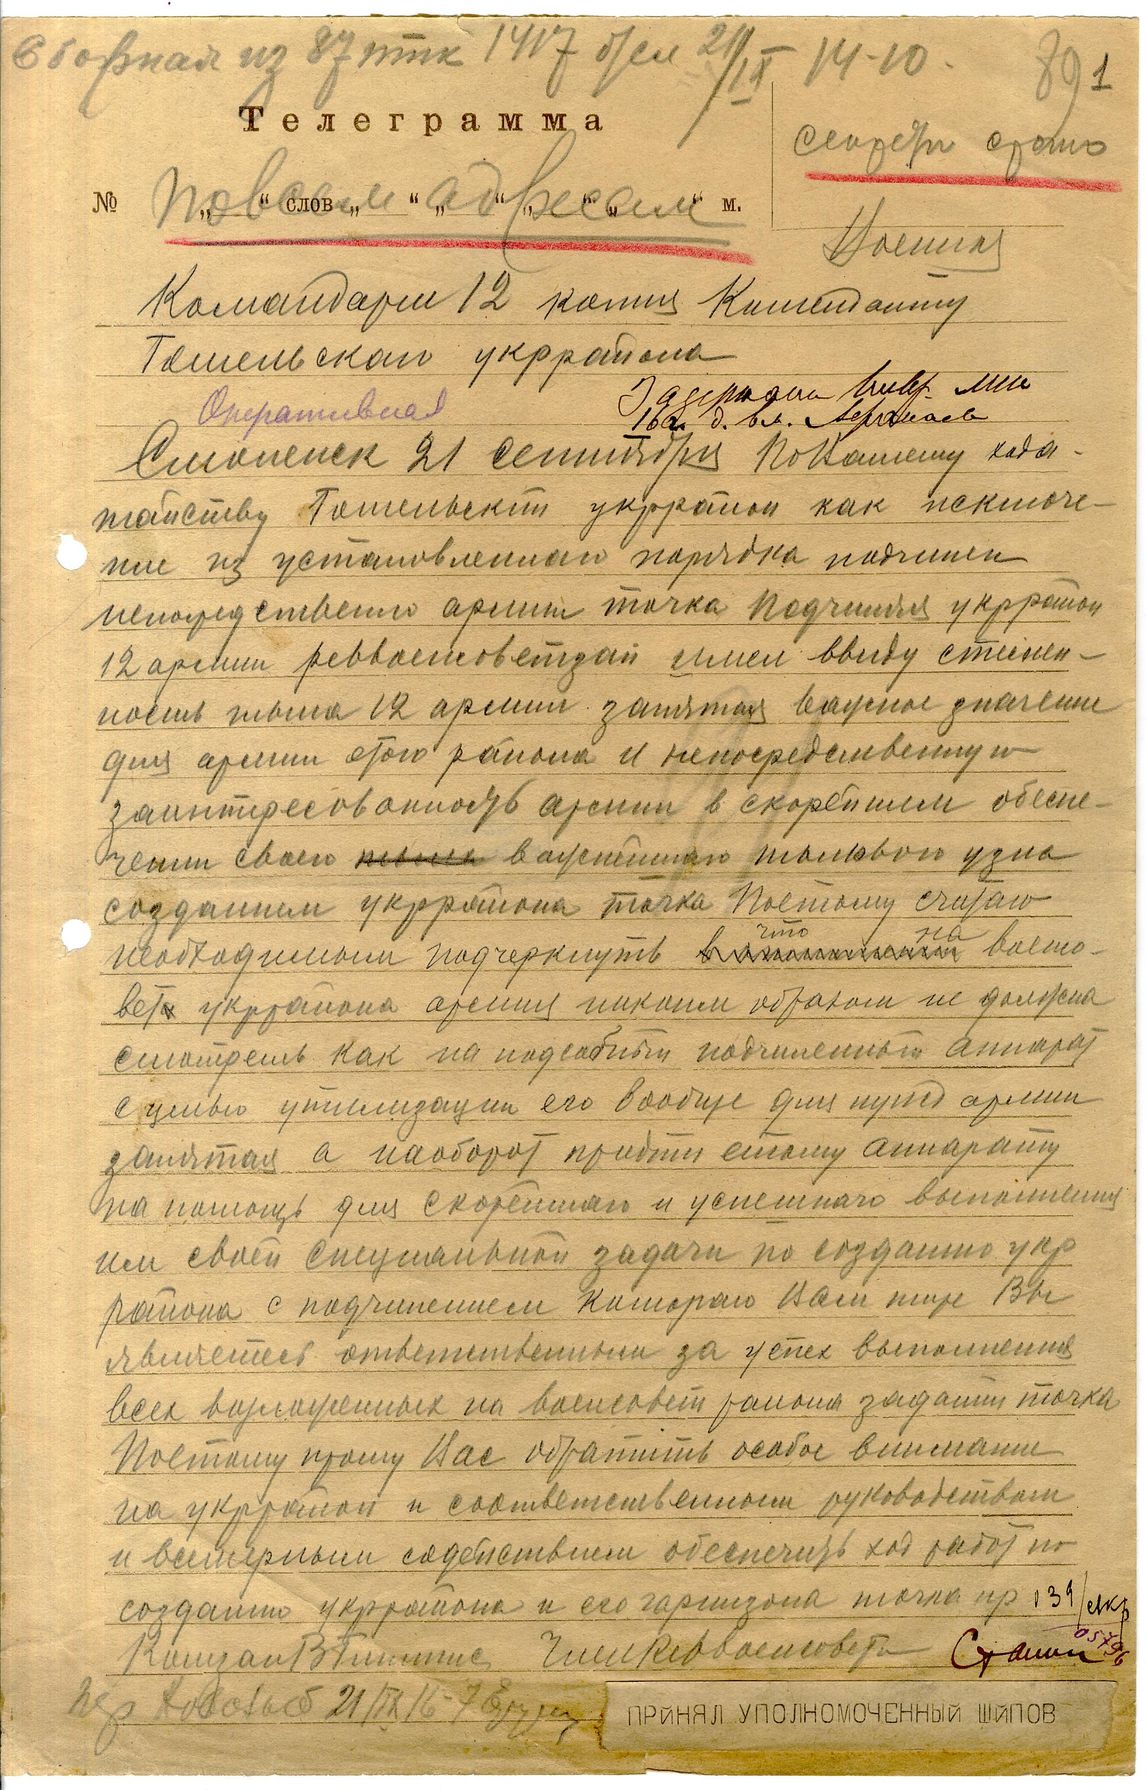 из 87 птк 1417 21/IX 14-10.
89 1
Телеграмма
срочно
№ „ “ слов „ “ „ “ „ “ „ “ м.
По всем адресам
Военная
Командарм 12 копия Коменданту
Гомельского укррайона
Оперативная
Смоленск 21 сентября По Вашему хода-
тайству Гомельский укррайон как исключе-
ние из установленного порядка подчинен
непосредственно армии точка Подчиняя укррайон
12 армии реввоенсоветзап имел ввиду
тыла 12 армии запятая важное значение
для армии этого района и непосредственную
заинтересованность армии в скорейшем обеспе-
чении своего важнейшего тылового узла
созданием укррайона точка Поэтому считаю
необходимым подчеркнуть что на воено-
вет укррайона армия никоим образом не должна
смотреть как на подсобный подчиненный аппарат
с целью утилизации его вообще для нужд армии
запятая а наоборот прийти этому аппарату
на помощь для скорейшаго и успешнаго выполнения
им своей специальной задачи по созданию укр
района с подчинением которого Вам
Вы
являетесь ответственным за успех выполнения
всех возложенных на военсовет района задач точка
Поэтому прошу Вас обратить особое внимание
на укррайон и соответственным руководством
и всемерным содействием обеспечить ход работ по
созданию укррайона и его гарнизона точка нр 139/секр
0579б
Комзап Гиттис Член Реввоенсовета Сталин
21/IX 16-7
ПРИНЯЛ УПОЛНОМОЧЕННЫЙ ШИПОВ